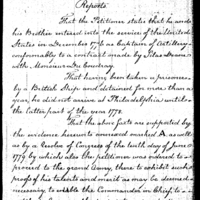 Reports
That the Petitioner states that he and
his Brother entered into the service of the United
States in December 1776 as Captains of Artillery
conformably to a contract made by Silas Deane
with Monsieur Du Coudray.
That having been taken a prisoner
by a British Ship and detained for more than a
year, he did not arrive at Philadelphia until
the latter part of the year 1778.
That the above facts are supported by
the evidence hereunto annexed marked A as well
as by a Resolve of Congress of the tenth day of June
1779 by which also the petitioner was ordered to
proceed to the grand Army, there to exhibit such
proofs of his talents and merit as may be deemed
necessary to enable the Commander in Chief to